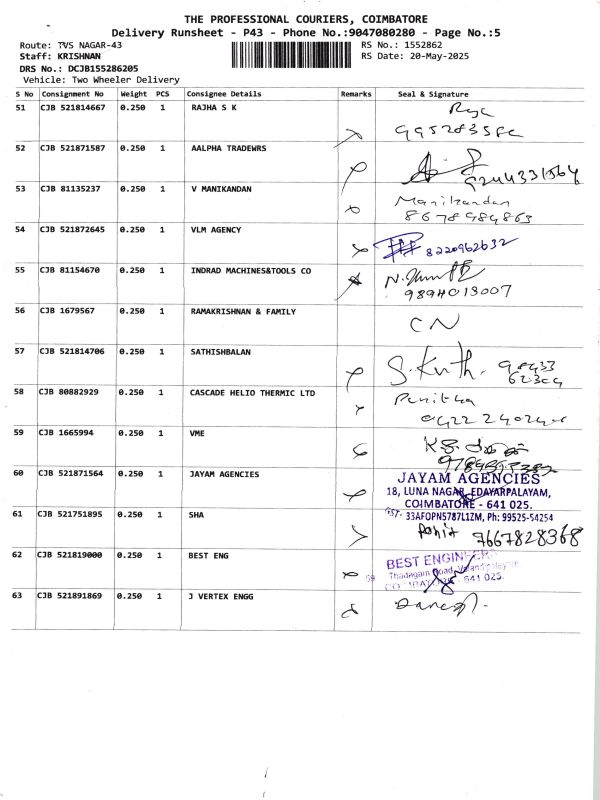 THE PROFESSIONAL COURIERS, COIMBATORE
Delivery Runsheet - P43 - Phone No.:9047080280 - Page No.:5
Route: TVS NAGAR-43 RS No.: 1552862
Staff: KRISHNAN RS Date: 20-May-2025
DRS No.: DCJB155286205
Vehicle: Two Wheeler Delivery
S No Consignment No Weight PCS Consignee Details Remarks Seal & Signature
51 CJB 521814667 0.250 1 RAJHA S K
52 CJB 521871587 0.250 1 AALPHA TRADEWRS
9244331564
53 CJB 81135237 0.250 1 V MANIKANDAN Manikandan
8678984863
54 CJB 521872645 0.250 1 VLM AGENCY 8220962632
55 CJB 81154670 0.250 1 INDRAD MACHINES&TOOLS CO
9894013007
56 CJB 1679567 0.250 1 RAMAKRISHNAN & FAMILY
CN
57 CJB 521814706 0.250 1 SATHISHBALAN
58 CJB 80882929 0.250 1 CASCADE HELIO THERMIC LTD
59 CJB 1665994 0.250 1 VME
60 CJB 521871564 0.250 1 JAYAM AGENCIES JAYAM AGENCIES
18, LUNA NAGAR, EDAYARPALAYAM,
COIMBATORE - 641 025.
61 CJB 521751895 0.250 1 SHA GST: 33AFOPN5787L1ZM, Ph: 99525-54254
Rohit 7667828368
62 CJB 521819000 0.250 1 BEST ENG BEST ENGINEERS
Thadagam Road,
641 025.
63 CJB 521891869 0.250 1 J VERTEX ENGG